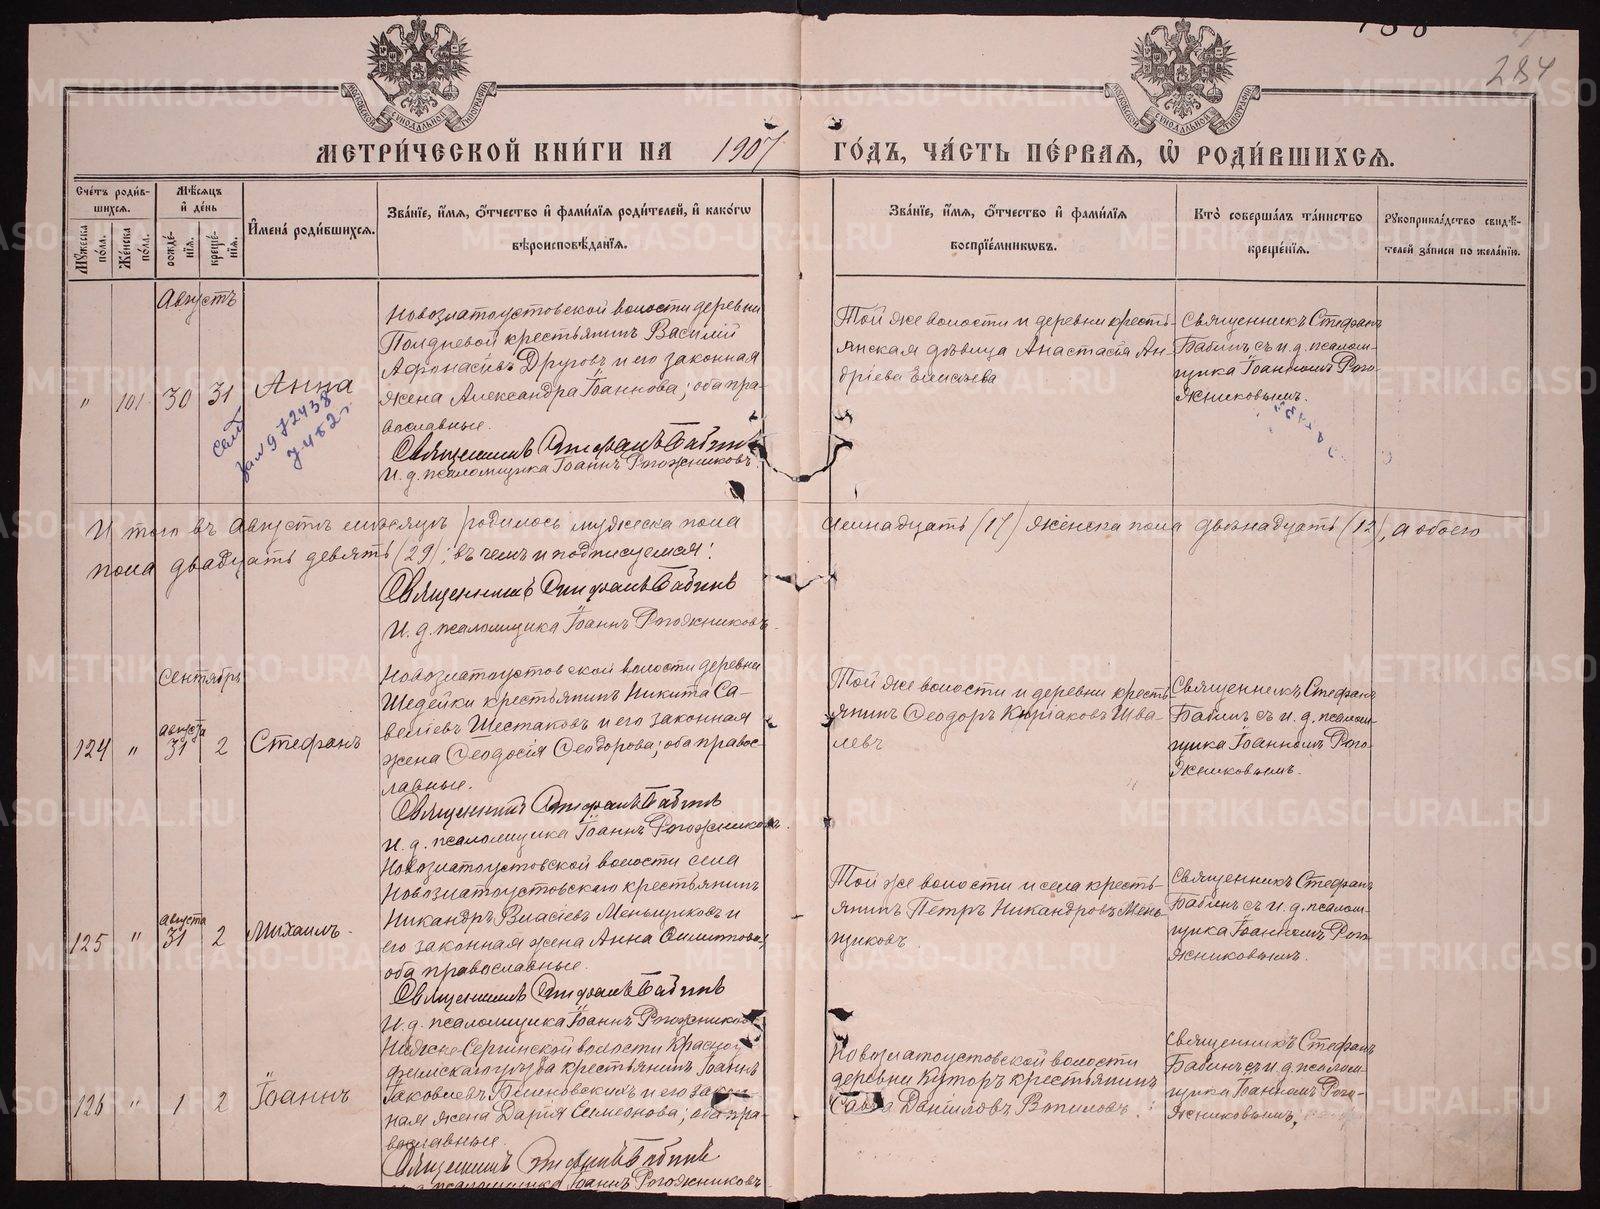 284
МЕТРИ́ЧЕСКОЙ КНИ́ГИ НА 1907 ГО́ДЪ, ЧА́СТЬ ПЕ́РВАЯ, Ѡ РОДИ́ВШИХСЯ.
Счетъ роди́вшихся.
Мѣсяцъ и де́нь
Мꙋжеска по́лꙋ.
Же́нска по́лꙋ.
рожде́нїѧ.
креще́нїѧ.
И҆мена̀ роди́вшихсѧ.
Зва́нїе, и҆́мѧ, ѻ҆́тчество и҆ фами́лїѧ роди́телей, и҆ како́гѡ
вѣроисповѣ́данїѧ.
Зва́нїе, и҆́мѧ, ѻ҆́тчество и҆ фами́лїѧ
воспрїе́мникѡвъ.
Кто̀ соверша́лъ та́инство
креще́нїѧ.
Рꙋкоприкла́дство свидѣ́-
телей за́писи по жела́нїю.
Августъ
" 101 30 31 Анна
Новозлатоустовской волости деревни
Полдневой крестьянинъ Василій
Афонасіевъ Друговъ и его законная
жена Александра Іоаннова; оба пра-
вославные.
Священникъ Стефанъ Бабинъ
И. д. псаломщика Іоаннъ Рогожниковъ.
Той же волости и деревни кресть-
янская дѣвица Анастасія Ан-
дріева Елисѣева
Священникъ Стефанъ
Бабинъ съ и. д. псалом-
щика Іоанномъ Рого-
жниковымъ.
И того въ Августѣ мѣсяцѣ родилось мужеска пола семнадцать (17) женска пола двѣнадцать (12), а обоего
пола двадцать девять (29); въ чемъ и подписуемся:
Священникъ Стефанъ Бабинъ
И. д. псаломщика Іоаннъ Рогожниковъ.
Сентябрь
124 " августа 31 2 Стефанъ
Новозлатоустовской волости деревни
Шедейки крестьянинъ Никита Са-
веліевъ Шестаковъ и его законная
жена Ѳеодосія Ѳеодорова; оба правос-
лавные.
Священникъ Стефанъ Бабинъ
И. д. псаломщика Іоаннъ Рогожниковъ.
Той же волости и деревни кресть-
янинъ Ѳеодоръ Киріаковъ Шва-
левъ
Священникъ Стефанъ
Бабинъ съ и. д. псалом-
щика Іоанномъ Рого-
жниковымъ.
125 " августа 31 2 Михаилъ
Новозлатоустовской волости села
Новозлатоустовскаго крестьянинъ
Никандръ Власіевъ Меньщиковъ и
его законная жена Анна Филиппова;
оба православные.
Священникъ Стефанъ Бабинъ
И. д. псаломщика Іоаннъ Рогожниковъ
Той же волости и села кресть-
янинъ Петръ Никандровъ Мень-
щиковъ.
Священникъ Стефанъ
Бабинъ съ и. д. псалом-
щика Іоанномъ Рого-
жниковымъ.
126 " 1 2 Іоаннъ
Нижне-Сергинской волости Красно-
уфимскаго уѣзда крестьянинъ Іоаннъ
Іаковлевъ и его закон-
ная жена Дарія Симеонова; оба пра-
вославные.
Священникъ Стефанъ Бабинъ
И. д. псаломщика Іоаннъ Рогожниковъ.
Новозлатоустовской волости
деревни Куторъ крестьянинъ
Савва Даніиловъ Вопиловъ.
Священникъ Стефанъ
Бабинъ съ и. д. псалом-
щика Іоанномъ Рого-
жниковымъ.
METRIKI.GASO-URAL.RU